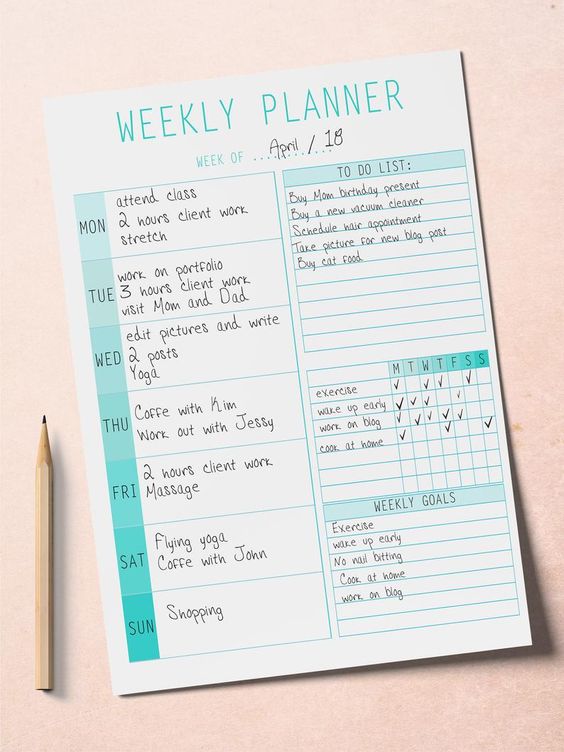 WEEKLY PLANNER
WEEK OF .......... April / 18
MON
attend class
2 hours client work
stretch
TUE
work on portfolio
3 hours client work
visit Mom and Dad
WED
edit pictures and write
2 posts
Yoga
THU
Coffe with Kim
Work out with Jessy
FRI
2 hours client work
Massage
SAT
Flying yoga
Coffe with John
SUN
Shopping
TO DO LIST:
Buy Mom birthday present
Buy a new vacuum cleaner
Schedule hair appointment
Take picture for new blog post
Buy cat food
M T W T F S S
exercise
wake up early
work on blog
cook at home
WEEKLY GOALS
Exercise
wake up early
No nail bitting
Cook at home
work on blog